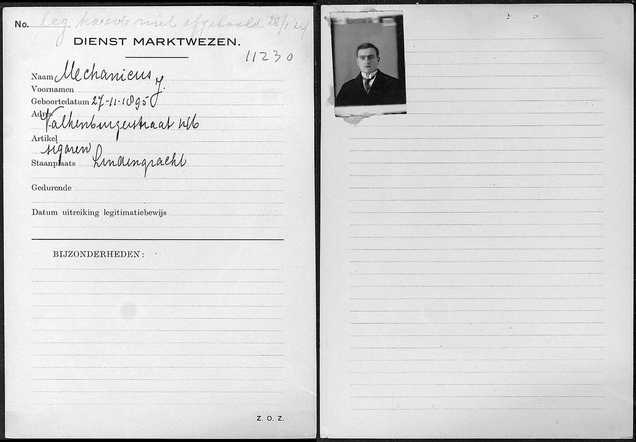 No. Leg. kaart niet afgehaald 28/1 24
DIENST MARKTWEZEN.
11230
Naam Mechanicus
Voornamen J.
Geboortedatum 27-11-1895
Adres Valkenburgerstraat
Artikel
sigaren
Staanplaats Lindengracht
Gedurende
Datum uitreiking legitimatiebewijs
BIJZONDERHEDEN:
Z. O. Z.